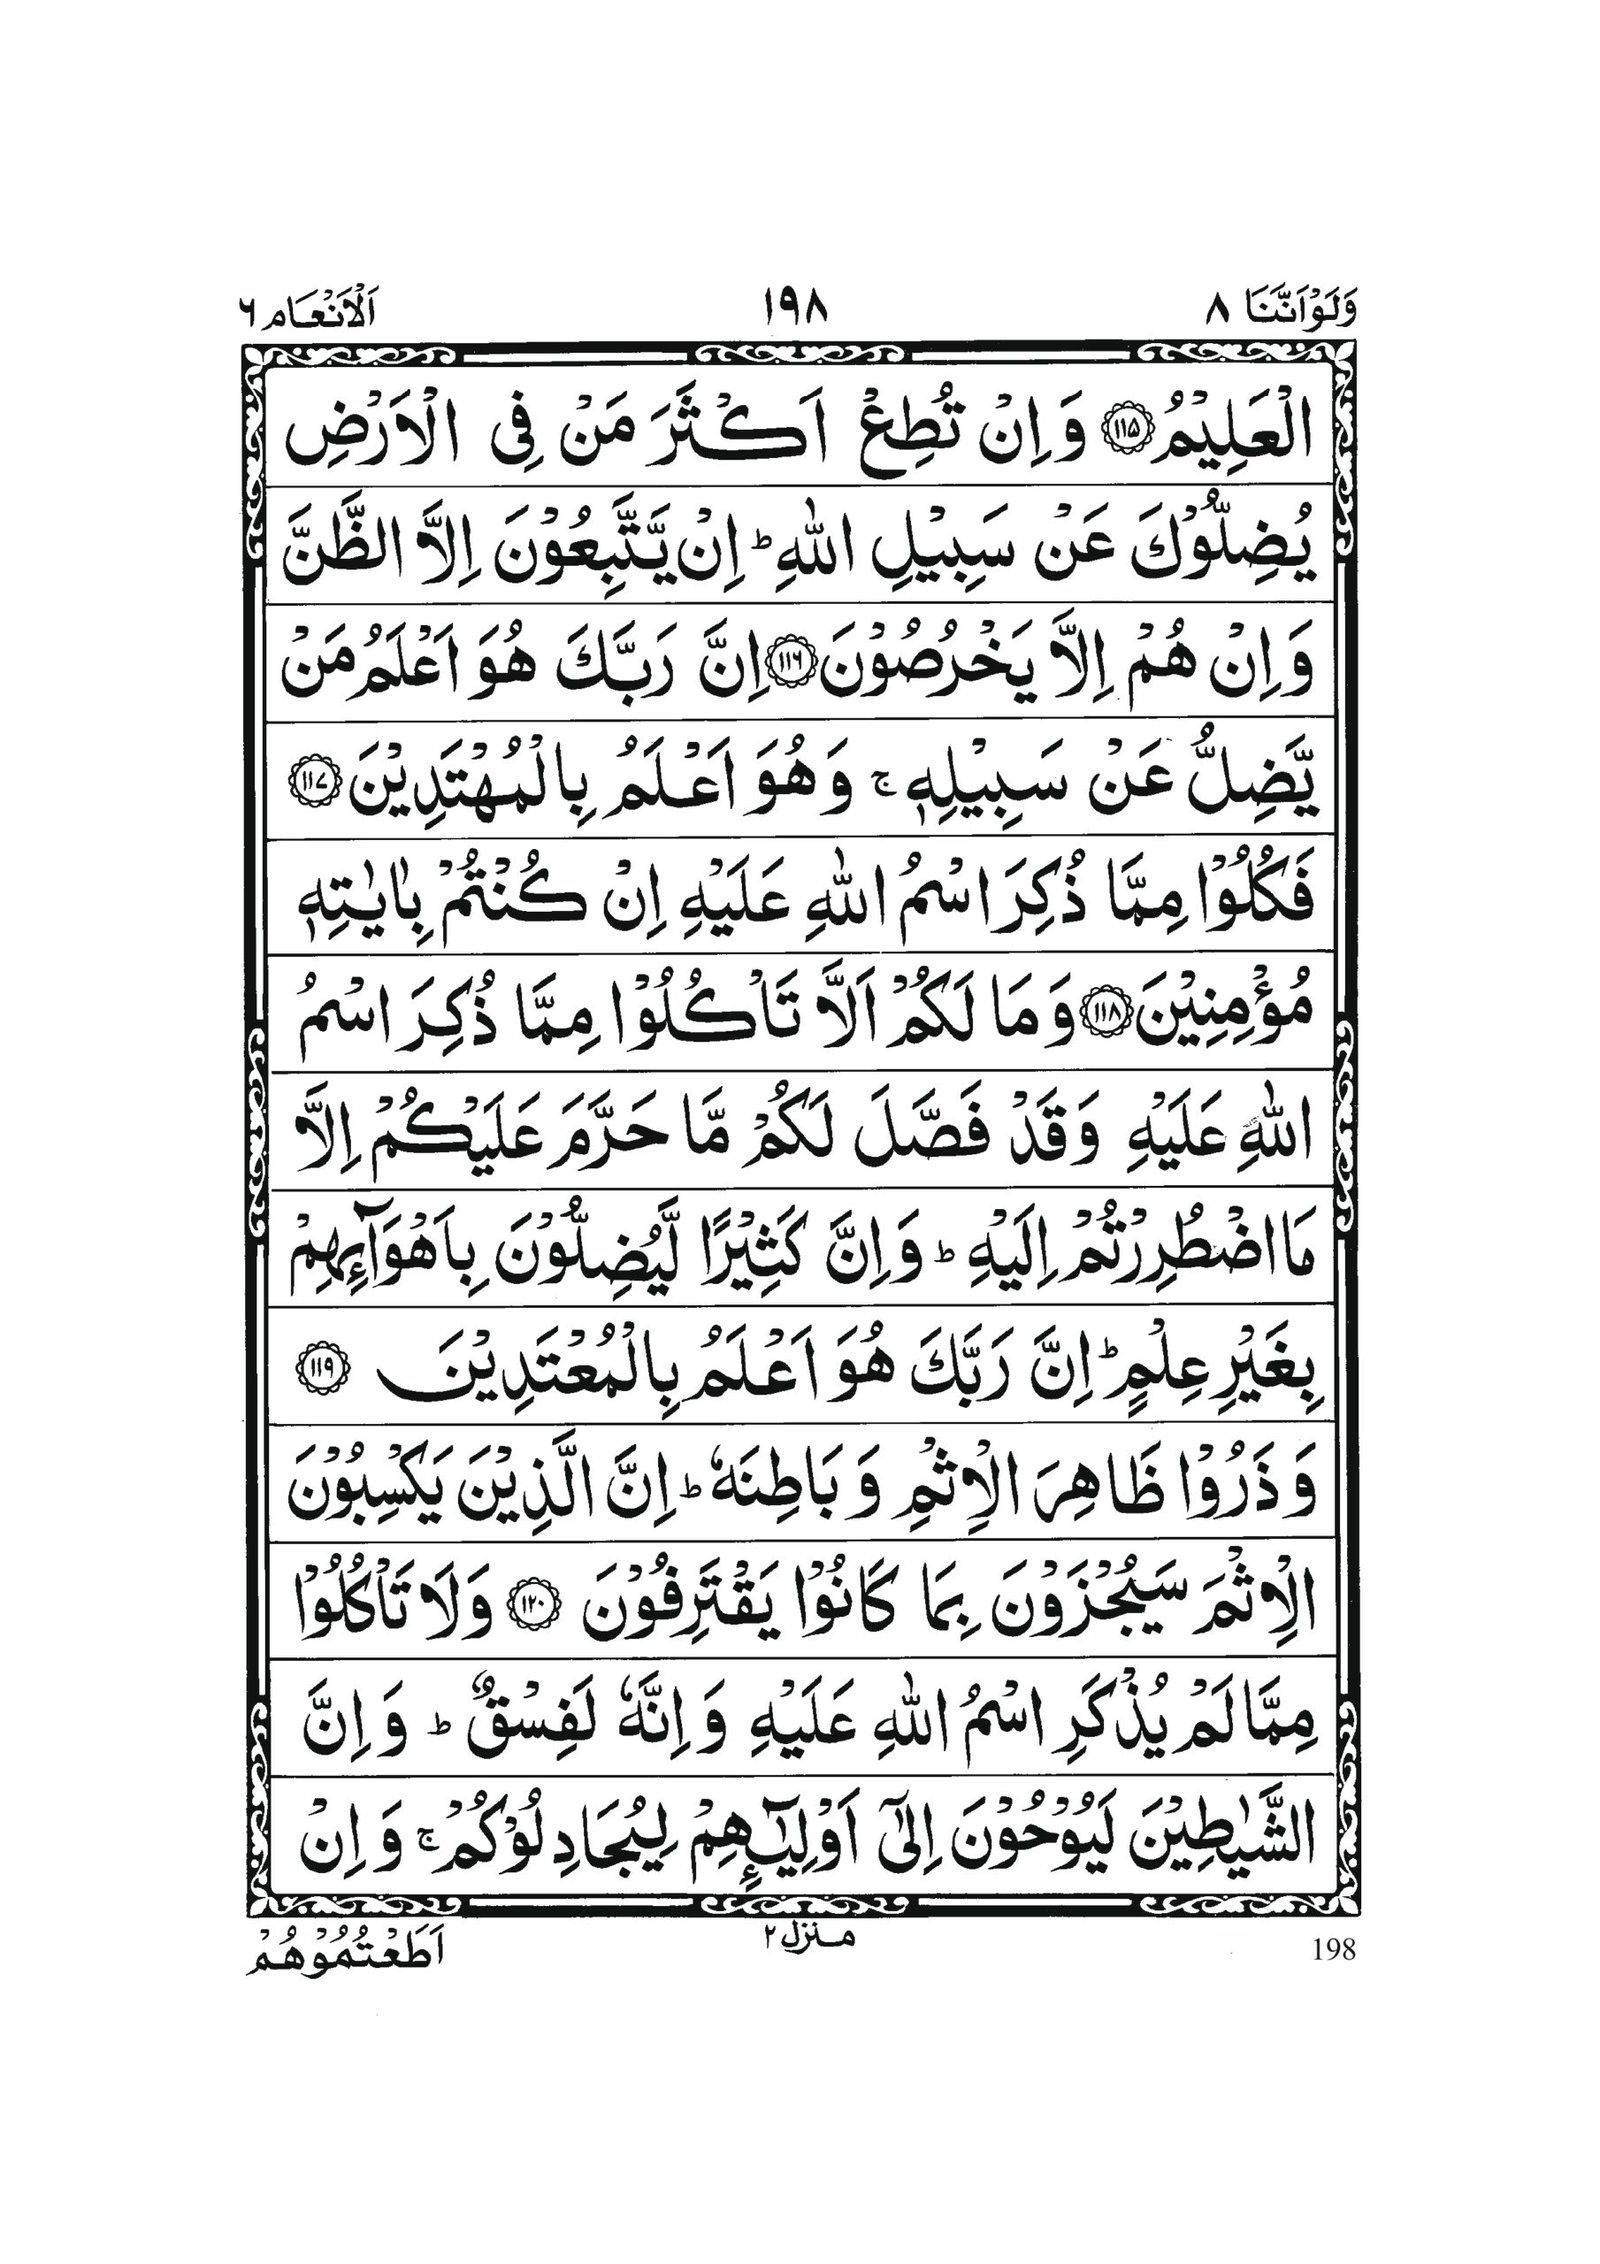 وَلَوْاَنَّنَا ٨
١٩٨
اَلْاَنْعَام ٦
الْعَلِيْمُ ﴿١١٥﴾ وَ اِنْ تُطِعْ اَكْثَرَ مَنْ فِى الْاَرْضِ
يُضِلُّوْكَ عَنْ سَبِيْلِ اللّٰهِ ؕ اِنْ يَّتَّبِعُوْنَ اِلَّا الظَّنَّ
وَ اِنْ هُمْ اِلَّا يَخْرُصُوْنَ ﴿١١٦﴾ اِنَّ رَبَّكَ هُوَ اَعْلَمُ مَنْ
يَّضِلُّ عَنْ سَبِيْلِهٖ ۚ وَ هُوَ اَعْلَمُ بِالْمُهْتَدِيْنَ ﴿١١٧﴾
فَكُلُوْا مِمَّا ذُكِرَ اسْمُ اللّٰهِ عَلَيْهِ اِنْ كُنْتُمْ بِاٰيٰتِهٖ
مُؤْمِنِيْنَ ﴿١١٨﴾ وَ مَا لَكُمْ اَلَّا تَاْكُلُوْا مِمَّا ذُكِرَ اسْمُ
اللّٰهِ عَلَيْهِ وَ قَدْ فَصَّلَ لَكُمْ مَّا حَرَّمَ عَلَيْكُمْ اِلَّا
مَا اضْطُرِرْتُمْ اِلَيْهِ ؕ وَ اِنَّ كَثِيْرًا لَّيُضِلُّوْنَ بِاَهْوَآئِهِمْ
بِغَيْرِ عِلْمٍ ؕ اِنَّ رَبَّكَ هُوَ اَعْلَمُ بِالْمُعْتَدِيْنَ ﴿١١٩﴾
وَ ذَرُوْا ظَاهِرَ الْاِثْمِ وَ بَاطِنَهٗ ؕ اِنَّ الَّذِيْنَ يَكْسِبُوْنَ
الْاِثْمَ سَيُجْزَوْنَ بِمَا كَانُوْا يَقْتَرِفُوْنَ ﴿١٢٠﴾ وَ لَا تَاْكُلُوْا
مِمَّا لَمْ يُذْكَرِ اسْمُ اللّٰهِ عَلَيْهِ وَ اِنَّهٗ لَفِسْقٌ ؕ وَ اِنَّ
الشَّيٰطِيْنَ لَيُوْحُوْنَ اِلٰٓى اَوْلِيٰٓـئِهِمْ لِيُجَادِلُوْكُمْ ۚ وَ اِنْ
198
منزل ٢
اَطَعْتُمُوْهُمْ